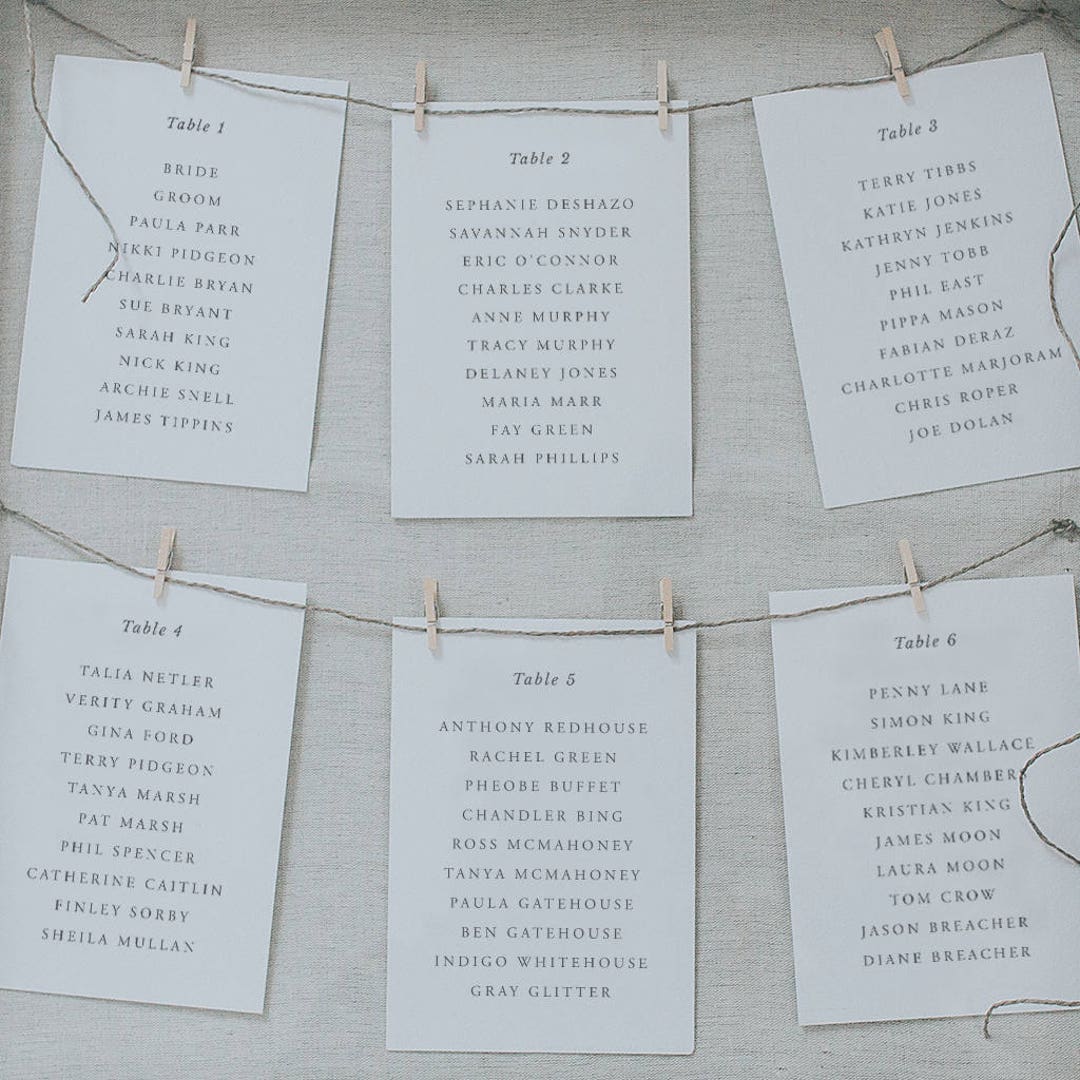 Table 1
BRIDE
GROOM
PAULA PARR
NIKKI PIDGEON
CHARLIE BRYAN
SUE BRYANT
SARAH KING
NICK KING
ARCHIE SNELL
JAMES TIPPINS
Table 2
SEPHANIE DESHAZO
SAVANNAH SNYDER
ERIC O'CONNOR
CHARLES CLARKE
ANNE MURPHY
TRACY MURPHY
DELANEY JONES
MARIA MARR
FAY GREEN
SARAH PHILLIPS
Table 3
TERRY TIBBS
KATIE JONES
KATHRYN JENKINS
JENNY TOBB
PHIL EAST
PIPPA MASON
FABIAN DERAZ
CHARLOTTE MARJORAM
CHRIS ROPER
JOE DOLAN
Table 4
TALIA NETLER
VERITY GRAHAM
GINA FORD
TERRY PIDGEON
TANYA MARSH
PAT MARSH
PHIL SPENCER
CATHERINE CAITLIN
FINLEY SORBY
SHEILA MULLAN
Table 5
ANTHONY REDHOUSE
RACHEL GREEN
PHEOBE BUFFET
CHANDLER BING
ROSS MCMAHONEY
TANYA MCMAHONEY
PAULA GATEHOUSE
BEN GATEHOUSE
INDIGO WHITEHOUSE
GRAY GLITTER
Table 6
PENNY LANE
SIMON KING
KIMBERLEY WALLACE
CHERYL CHAMBERS
KRISTIAN KING
JAMES MOON
LAURA MOON
TOM CROW
JASON BREACHER
DIANE BREACHER